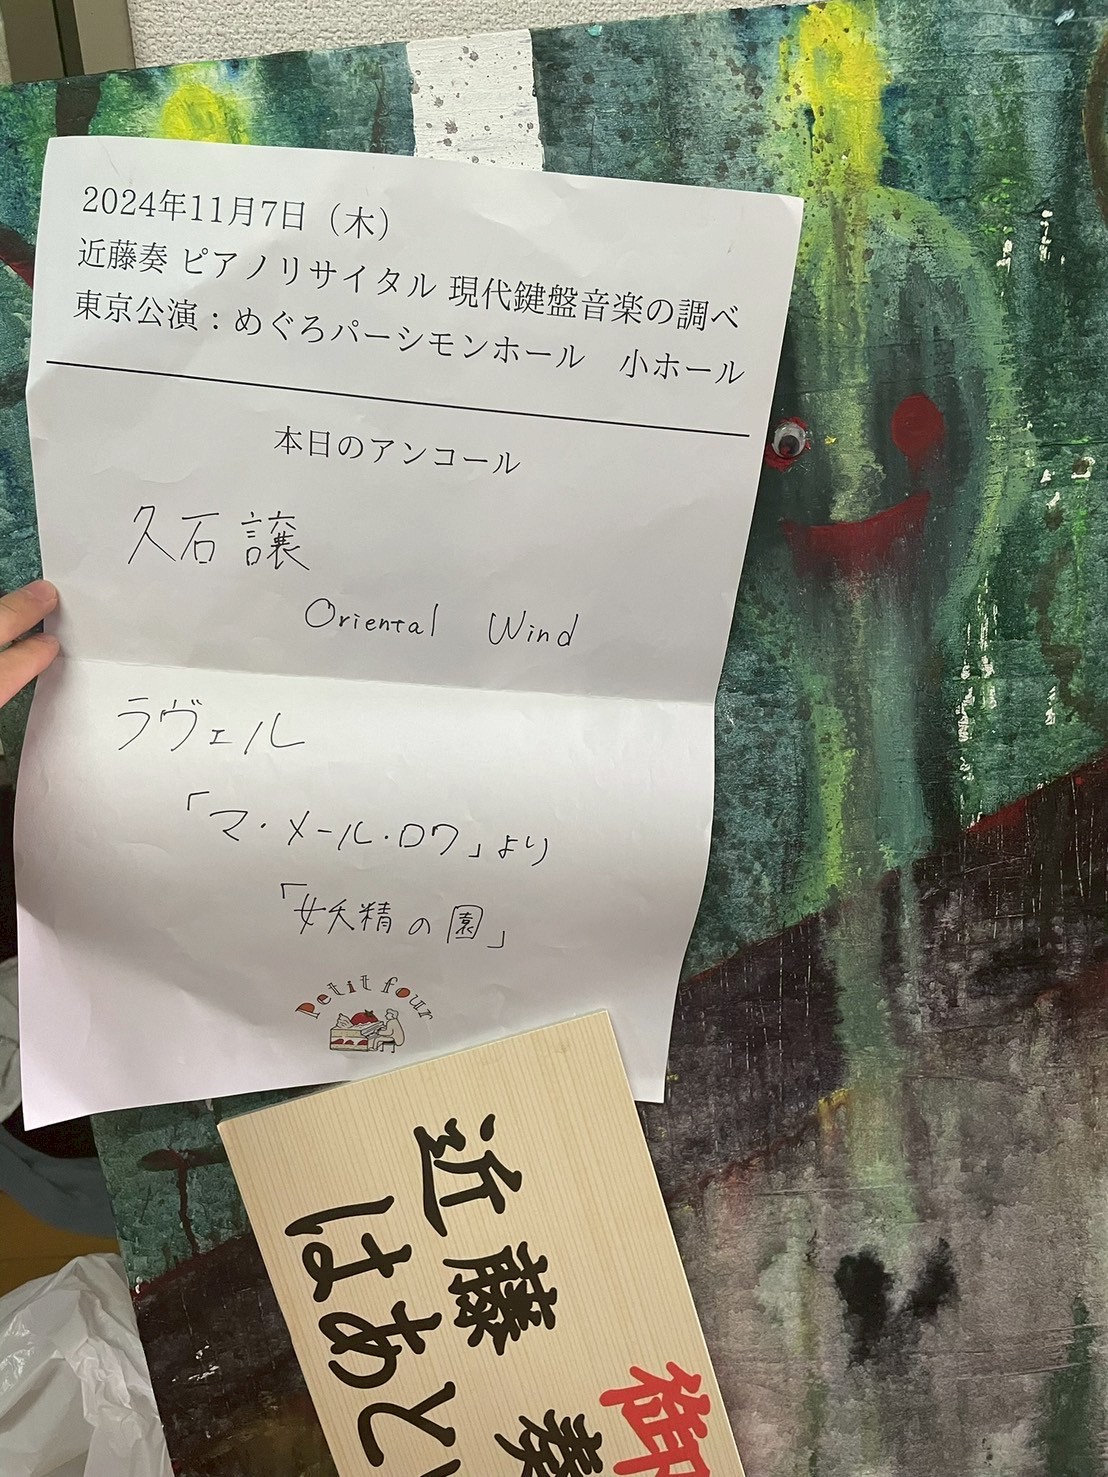 2024年11月7日（木）
近藤奏 ピアノリサイタル 現代鍵盤音楽の調べ
東京公演：めぐろパーシモンホール　小ホール
本日のアンコール
久石 譲
Oriental Wind
ラヴェル
「マ・メール・ロワ」より
「妖精の園」
Petit four
御
近藤 奏
はあと